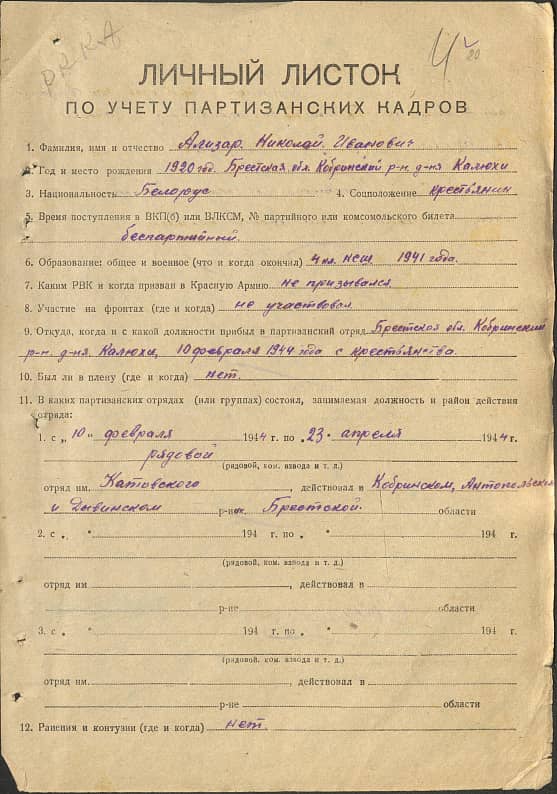 РККА
20
ЛИЧНЫЙ ЛИСТОК
ПО УЧЕТУ ПАРТИЗАНСКИХ КАДРОВ
1. Фамилия, имя и отчество Ализар Николай Иванович
2. Год и место рождения 1920 год. Брестская обл. Кобринский р-н д-ня Калюхи
3. Национальность Белорус 4. Соцположение крестьянин
5. Время поступления в ВКП(б) или ВЛКСМ, № партийного или комсомольского билета
беспартийный.
6. Образование: общее и военное (что и когда окончил) 4 кл. НСШ 1941 года.
7. Каким РВК и когда призван в Красную Армию не призывался
8. Участие на фронтах (где и когда) не участвовал
9. Откуда, когда и с какой должности прибыл в партизанский отряд Брестская обл. Кобринский
р-н. д-ня. Калюхи, 10 февраля 1944 года с крестьянства.
10. Был ли в плену (где и когда) нет.
11. В каких партизанских отрядах (или группах) состоял, занимаемая должность и район действия
отряда:
1. с „ 10 " февраля 1944 г. по „ 23 " апреля 1944 г.
рядовой
(рядовой, ком. взвода и т. д.)
отряд им. Катовского, действовал в Кобринском, Антопольском
и Дывинском р-не Брестской области
2. с „ " 194 г. по „ " 194 г.
(рядовой, ком. взвода и т. д.)
отряд им , действовал в
р-не области
3. с „ " 194 г. по „ " 194 г.
(рядовой, ком. взвода и т. д.)
отряд им. , действовал в
р-не области
12. Ранения и контузии (где и когда) нет.